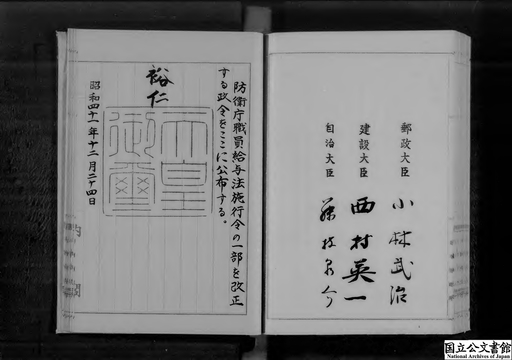 郵政大臣 小林武治
建設大臣 西村英一
自治大臣 藤枝泉介
防衛庁職員給与法施行令の一部を改正
する政令をここに公布する。
裕仁
天皇御璽
昭和四十一年十二月二十四日
内閣
国立公文書館
National Archives of Japan